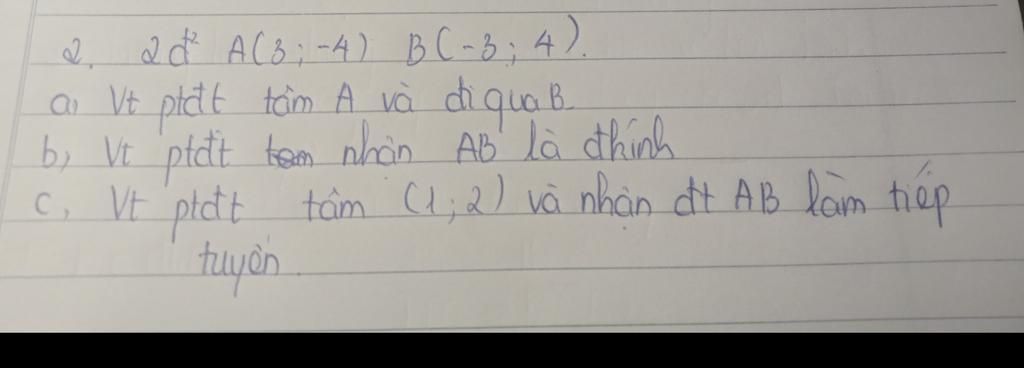 2. 2đ² A(3; -4) B(-3; 4).
a, Vt ptđt tâm A và đi qua B
b, Vt ptđt nhận AB là đkính
c, Vt ptđt tâm (1; 2) và nhận đt AB làm tiếp
tuyến